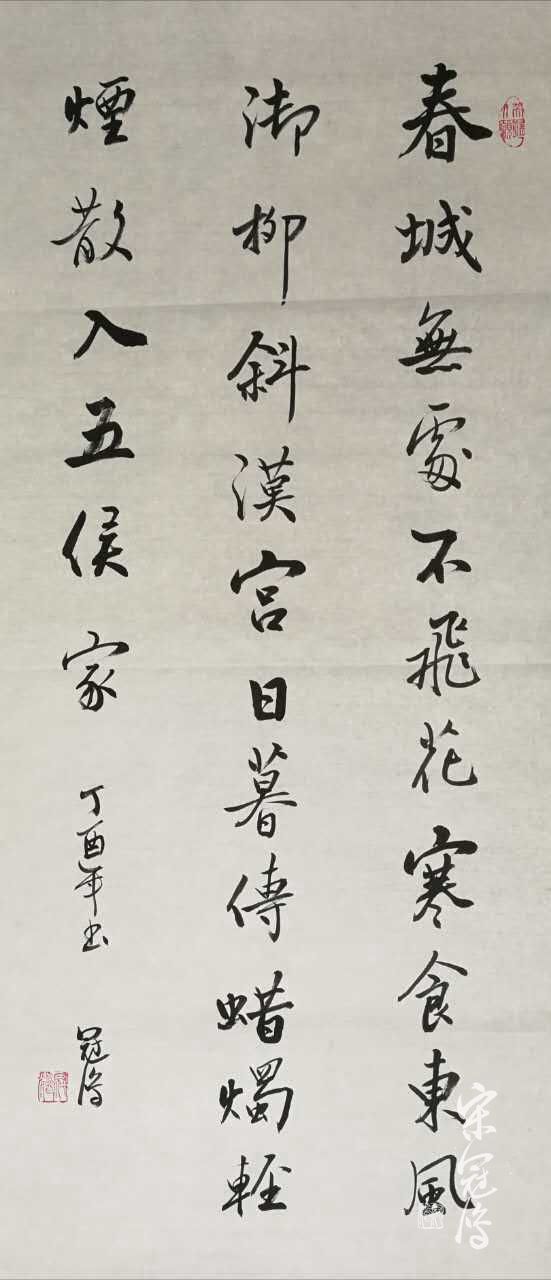 春城無處不飛花寒食東風
御柳斜漢宮日暮傳蜡燭輕
煙散入五侯家
丁酉年书
冠
宋冠